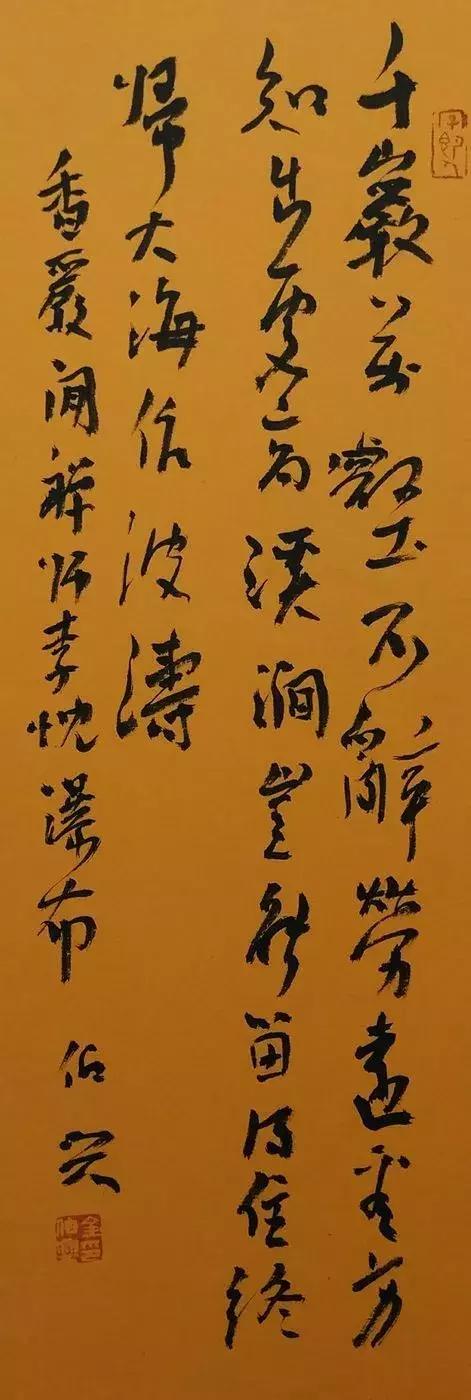 千巖萬壑不辭勞遠看方
知出處高溪澗豈能留得住終
歸大海作波濤
香嚴閑禪師李忱瀑布